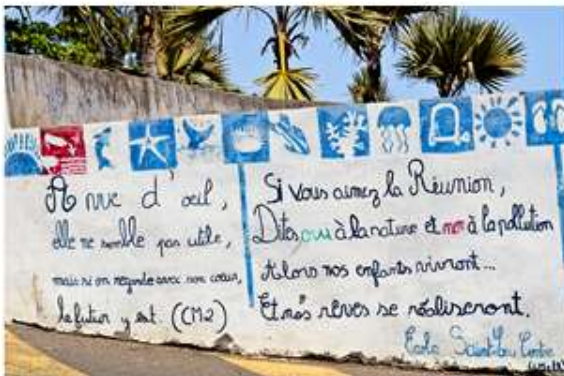 A vue d'oeil,
elle ne semble pas utile,
mais si on regarde avec son coeur,
le futur y est. (CM2)
Si vous aimez la Réunion,
Dites oui à la nature et non à la pollution
Alors nos enfants vivront...
Et nos rêves se réaliseront.
Ecole Saint-Leu Centre